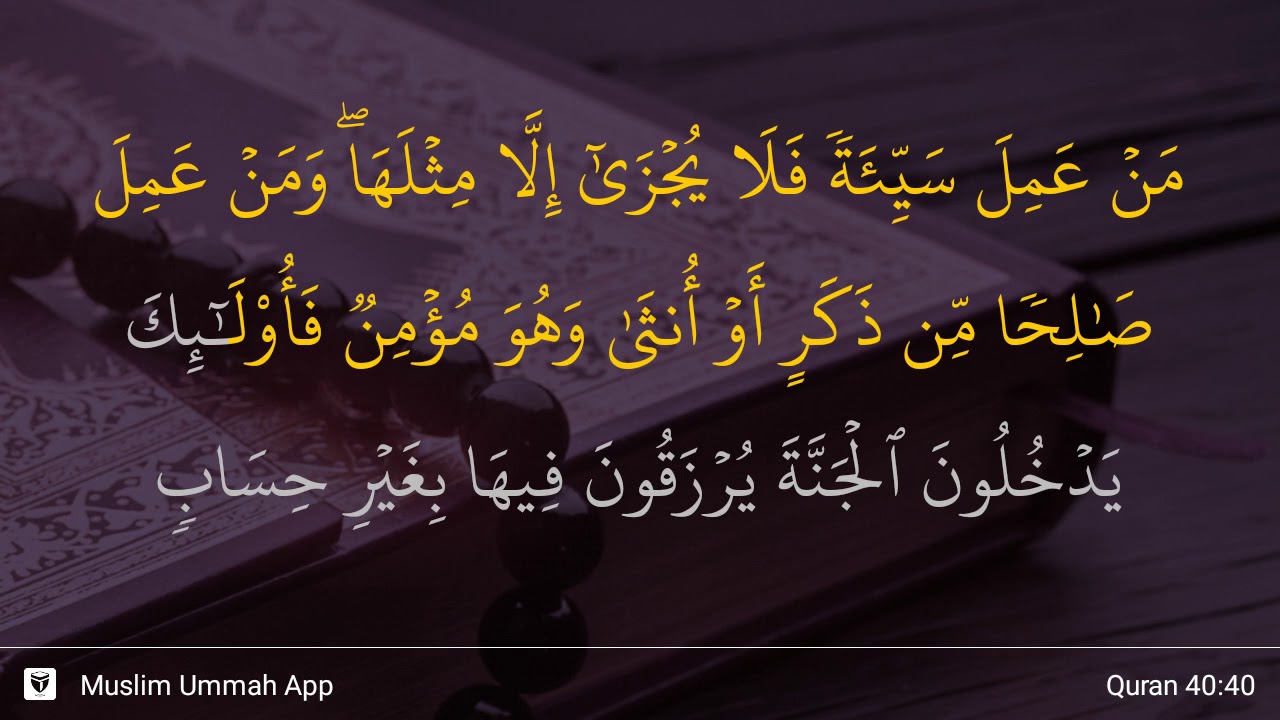 مَنْ عَمِلَ سَيِّئَةً فَلَا يُجْزَىٰٓ إِلَّا مِثْلَهَا ۖ وَمَنْ عَمِلَ
صَـٰلِحًا مِّن ذَكَرٍ أَوْ أُنثَىٰ وَهُوَ مُؤْمِنٌ فَأُو۟لَـٰٓئِكَ
يَدْخُلُونَ ٱلْجَنَّةَ يُرْزَقُونَ فِيهَا بِغَيْرِ حِسَابٍ
Muslim Ummah App
Quran 40:40